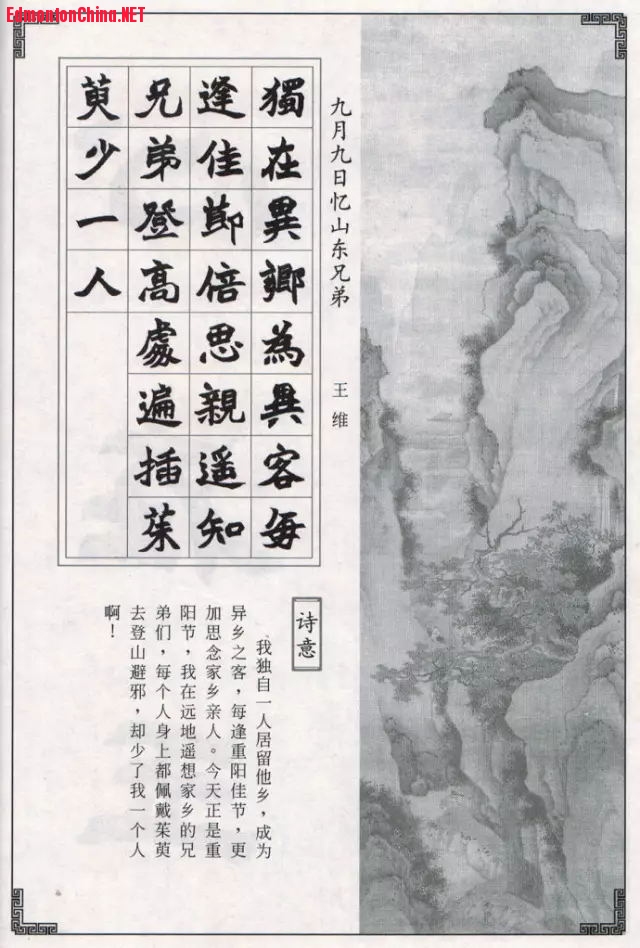 EdmontonChina.NET
九月九日忆山东兄弟
王维
獨在異鄉為異客每
逢佳節倍思親遥知
兄弟登高處遍插茱
萸少一人
诗意
我独自一人居留他乡，成为
异乡之客，每逢重阳佳节，更
加思念家乡亲人。今天正是重
阳节，我在远地遥想家乡的兄
弟们，每个人身上都佩戴茱萸
去登山避邪，却少了我一个人
啊！